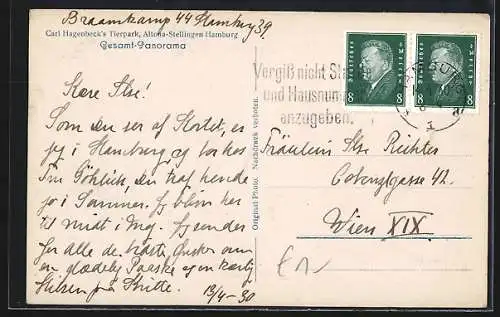 Braamkamp 44 Hamburg 39.
Carl Hagenbeck's Tierpark, Altona-Stellingen Hamburg
Gesamt-Panorama
Kære Ilse!
Som Du ser af Kortet, er
jeg i Hamburg og bor hos
Du traf hende
jo i Sommer. Jeg bliver her
til midt i Maj. Jeg sender
Jer alle de bedste Ønsker om
en glædelig Paaske og en kærlig
Hilsen fra Gritte.
13/4-30
Original-Photo. Nachdruck verboten.
Vergiß nicht
und Hausnum
anzugeben.
Deutsches Reich
8 8
Deutsches Reich
8 8
Fräulein Ilse Richter
Cobenzlgasse 42.
Wien XIX